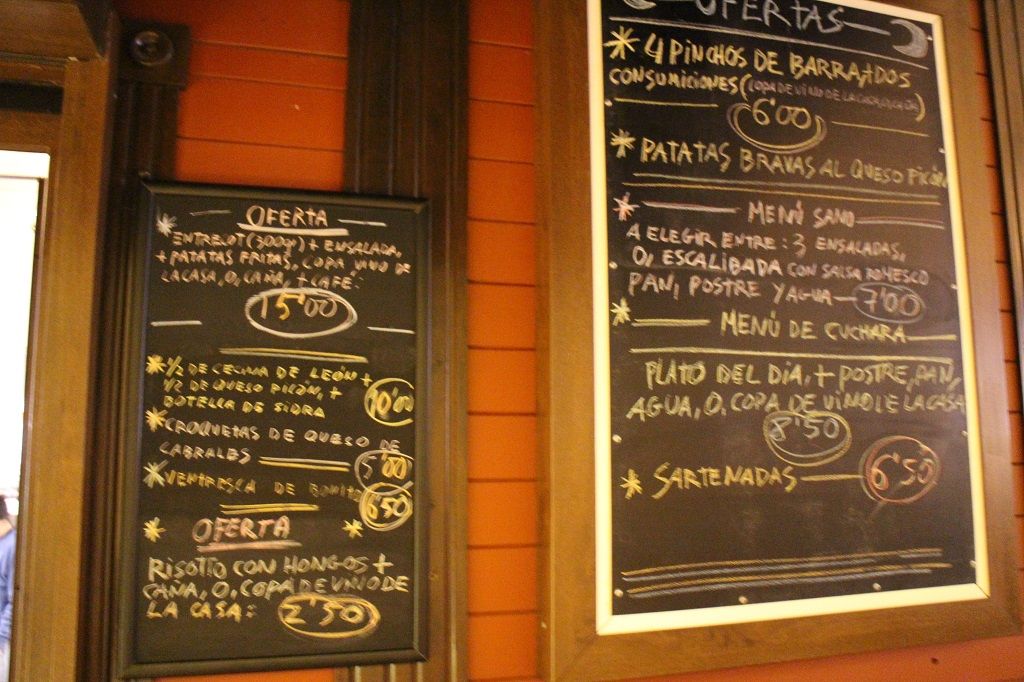 OFERTA
ENTRECOT (300gr) + ENSALADA,
+ PATATAS FRITAS, COPA VINO DE
LA CASA, O, CAÑA, + CAFÉ.
15'00
1/2 DE CECINA DE LEÓN +
1/2 DE QUESO PICÓN, +
BOTELLA DE SIDRA
10'00
CROQUETAS DE QUESO DE
CABRALES
5'00
VENTRESCA DE BONITO
6'50
OFERTA
RISOTTO CON HONGOS +
CAÑA, O, COPA DE VINO DE
LA CASA:
2'50
OFERTAS
4 PINCHOS DE BARRA + DOS
CONSUMICIONES (COPA DE VINO DE LA CASA
6'00
PATATAS BRAVAS AL QUESO PICÓN
MENÚ SANO
A ELEGIR ENTRE: 3 ENSALADAS,
O, ESCALIBADA CON SALSA ROMESCO
PAN, POSTRE Y AGUA 7'00
MENÚ DE CUCHARA
PLATO DEL DÍA, + POSTRE, PAN,
AGUA, O, COPA DE VINO DE LA CASA
8'50
SARTENADAS 6'50